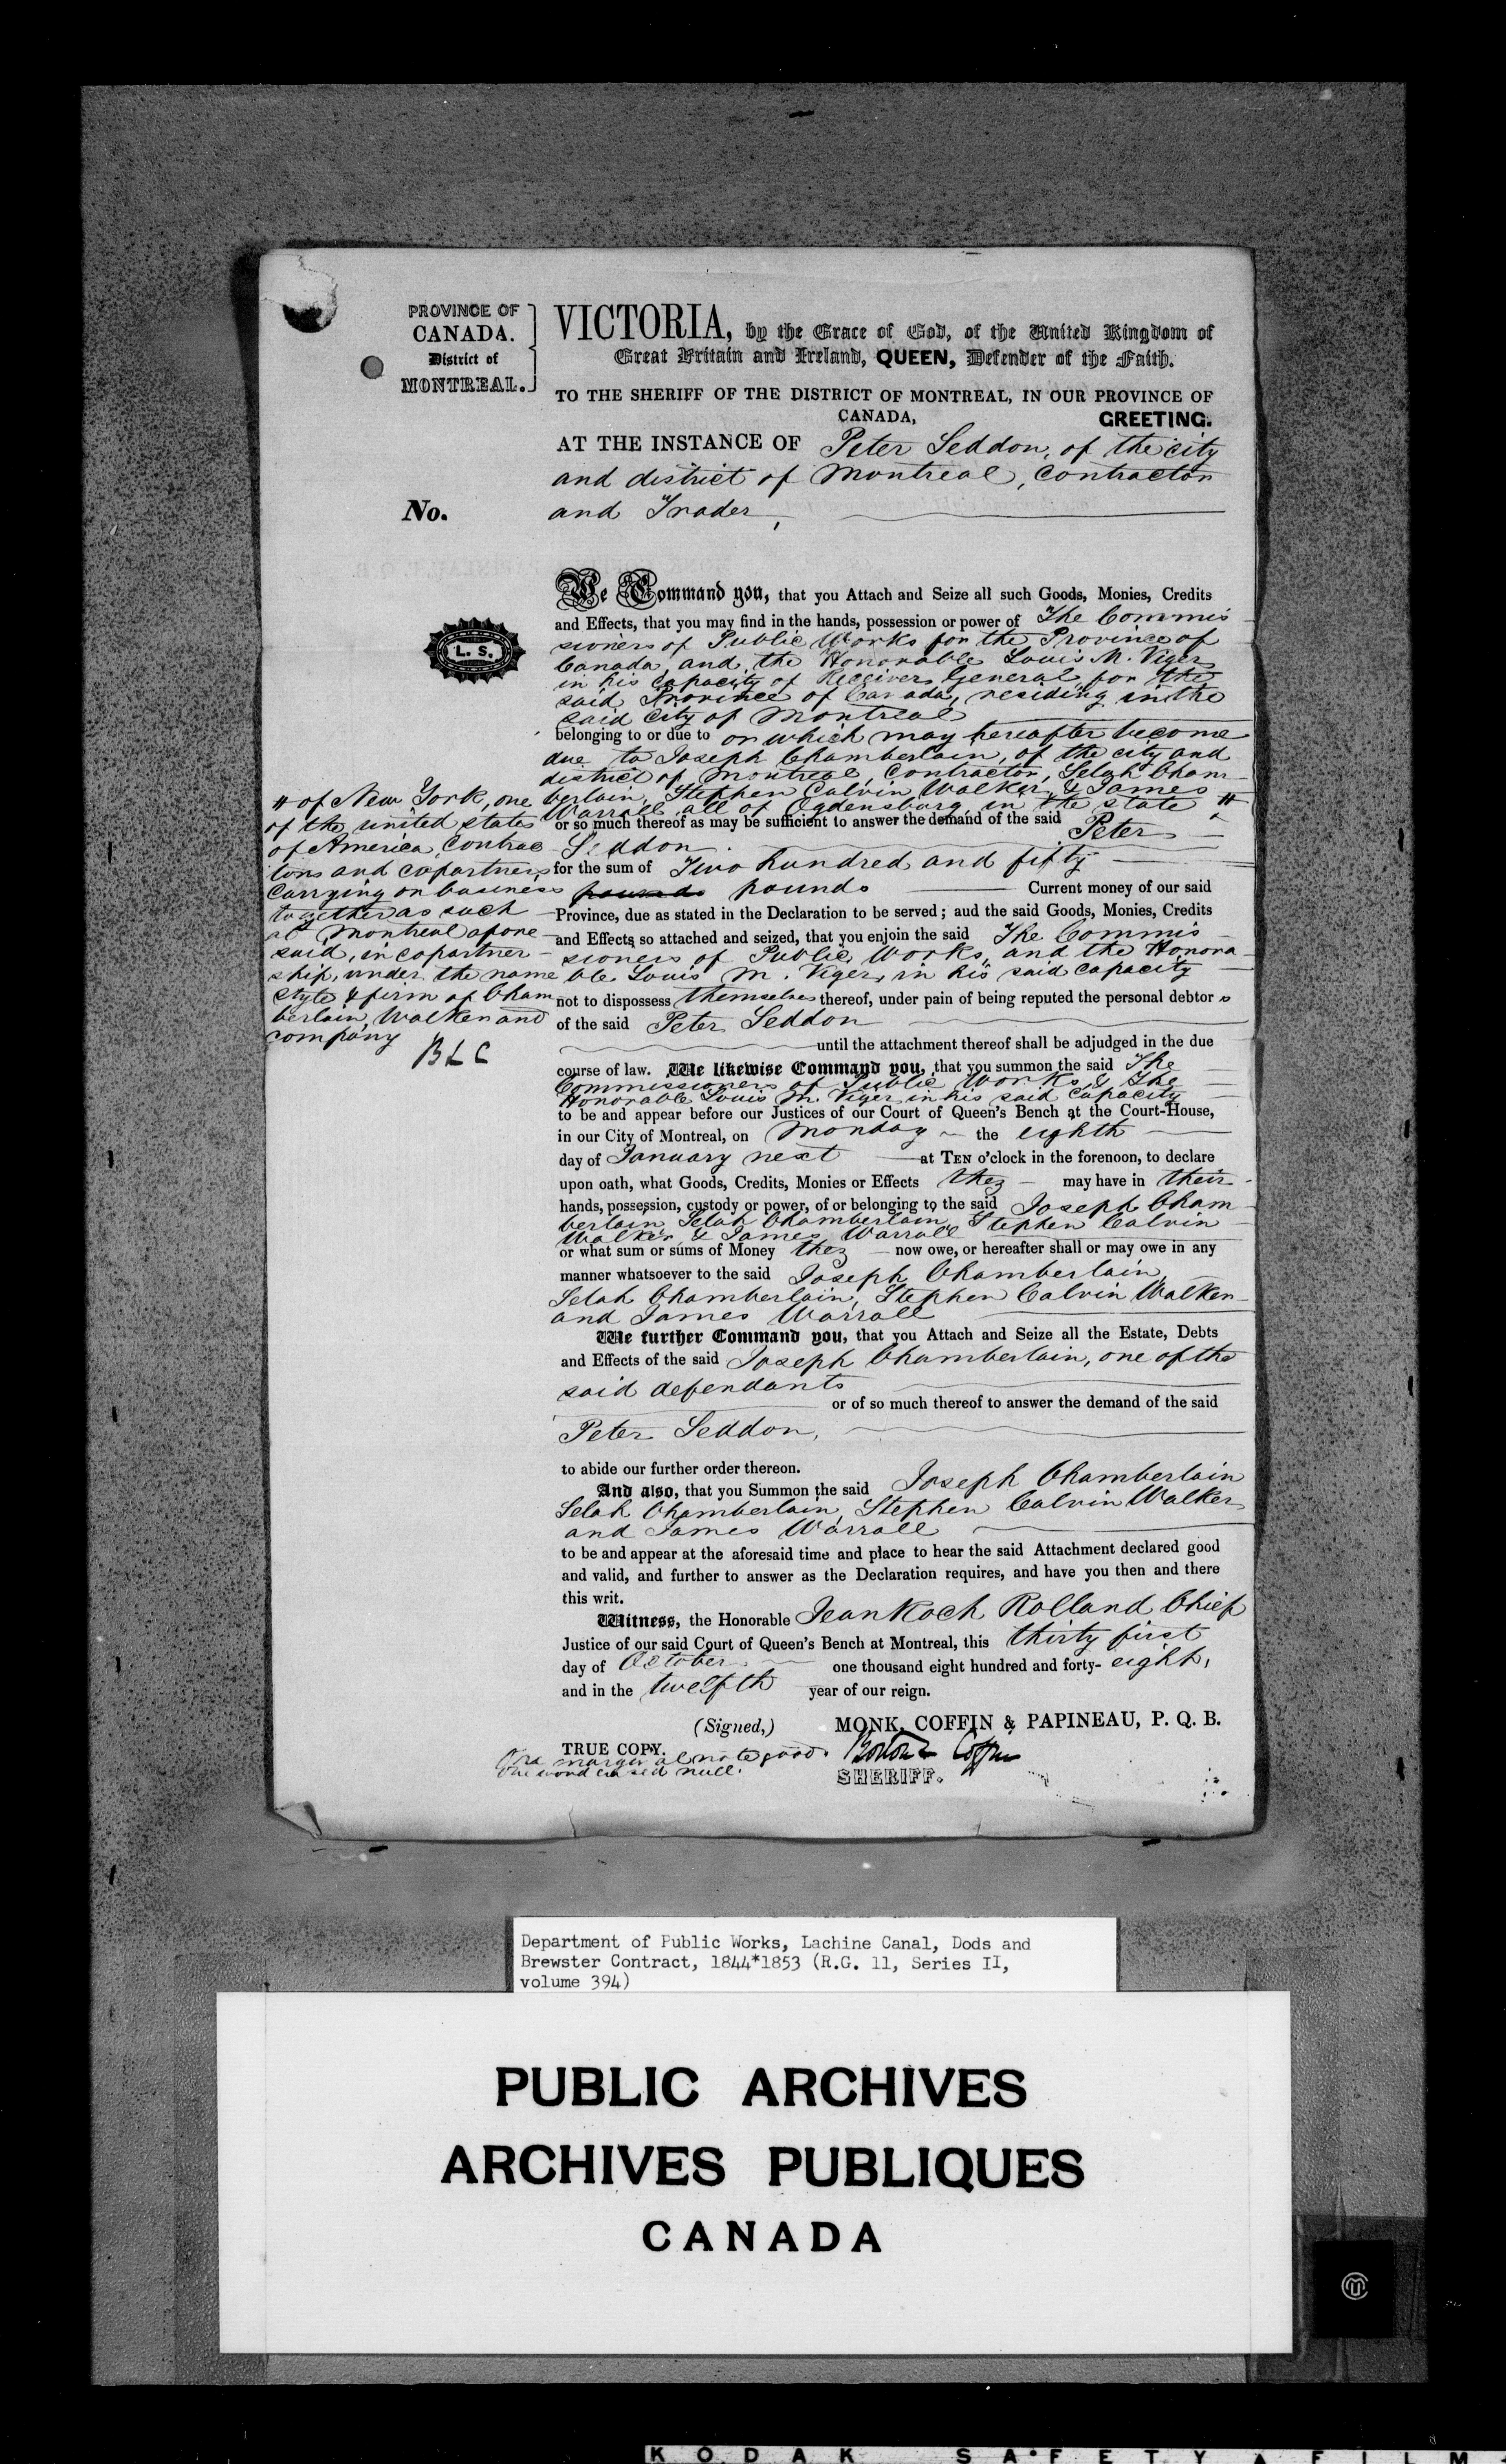 PROVINCE OF
CANADA.
District of
MONTREAL.
VICTORIA, by the Grace of God, of the United Kingdom of
Great Britain and Ireland, QUEEN, Defender of the Faith.
TO THE SHERIFF OF THE DISTRICT OF MONTREAL, IN OUR PROVINCE OF
CANADA, GREETING.
AT THE INSTANCE OF Peter Seddon, of the city
and district of Montreal, Contractor
No.
and Trader,
We Command you, that you Attach and Seize all such Goods, Monies, Credits
and Effects, that you may find in the hands, possession or power of The Commis
L. S.
sioners of Public Works for the Province of
Canada, and the Honorable Louis M. Viger
in his capacity of Receiver General for the
said Province of Canada, residing in the
said City of Montreal
belonging to or due to or which may hereafter become
due to Joseph Chamberlain, of the city and
district of Montreal, Contractor, Selah Cham
berlain, Stephen Calvin Walker, & James
Warrall all of Ogdensburg in the state #
# of New York, one
of the united states
of America, Contrac
tors and copartners
Carrying on business
together as such
at Montreal afore
said, in copartner
ship, under the name
style & firm of Cham
berlain, Walker and
company
B L C
or so much thereof as may be sufficient to answer the demand of the said Peter
Seddon
for the sum of Two hundred and fifty
pounds pounds Current money of our said
Province, due as stated in the Declaration to be served; aud the said Goods, Monies, Credits
and Effects so attached and seized, that you enjoin the said The Commis
sioners of Public Works, and the Honora
ble Louis M. Viger, in his said capacity
not to dispossess themselves thereof, under pain of being reputed the personal debtor s
of the said Peter Seddon
until the attachment thereof shall be adjudged in the due
course of law. We likewise Command you, that you summon the said The
Commissioners of Public Works & The
Honorable Louis M. Viger in his said capacity
to be and appear before our Justices of our Court of Queen's Bench at the Court-House,
in our City of Montreal, on Monday the eighth
day of January next at TEN o'clock in the forenoon, to declare
upon oath, what Goods, Credits, Monies or Effects they may have in their
hands, possession, custody or power, of or belonging to the said Joseph Cham
berlain, Selah Chamberlain, Stephen Calvin
Walker & James Warrall
or what sum or sums of Money they now owe, or hereafter shall or may owe in any
manner whatsoever to the said Joseph Chamberlain,
Selah Chamberlain, Stephen Calvin Walker
and James Warrall
We further Command you, that you Attach and Seize all the Estate, Debts
and Effects of the said Joseph Chamberlain, one of the
said defendants
or of so much thereof to answer the demand of the said
Peter Seddon,
to abide our further order thereon.
And also, that you Summon the said Joseph Chamberlain
Selah Chamberlain, Stephen Calvin Walker
and James Warrall
to be and appear at the aforesaid time and place to hear the said Attachment declared good
and valid, and further to answer as the Declaration requires, and have you then and there
this writ.
Witness, the Honorable Jean Roch Rolland Chief
Justice of our said Court of Queen's Bench at Montreal, this thirty first
day of October one thousand eight hundred and forty- eight,
and in the twelfth year of our reign.
(Signed,) MONK, COFFIN & PAPINEAU, P. Q. B.
TRUE COPY.
One marginal note good.
One word erased null.
Boston & Coffin
SHERIFF.
Department of Public Works, Lachine Canal, Dods and
Brewster Contract, 1844*1853 (R.G. 11, Series II,
volume 394)
PUBLIC ARCHIVES
ARCHIVES PUBLIQUES
CANADA
KODAK SAFETY FILM